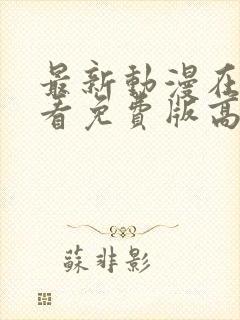 最新動漫在
看免費版高
蘇非影